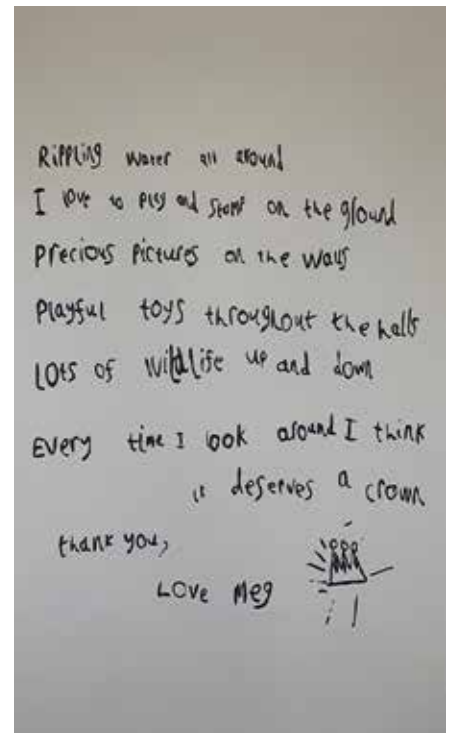 Rippling water all around
I love to play and stomp on the ground
Precious Pictures on the walls
Playful toys throughout the halls
Lots of wildlife up and down
Every time I look around I think
it deserves a crown
thank you,
Love Meg